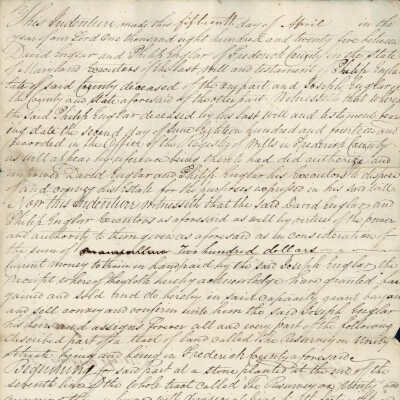 This Indenture made this fifteenth day of April in the
year of our Lord One thousand eight hundred and twenty five between
David Englar and Philip Englar of Frederick County in the State
of Maryland Executors of the last Will and testament of Philip Englar
late of said County deceased of the one part and Joseph Englar of
the County and State aforesaid of the other part. Witnesseth that whereas
the said Philip Englar deceased by his last Will and testament bear
ing date the second day of June Eighteen hundred and fourteen and
recorded in the Office of the Register of Wills in Frederick County
as will appear by reference being thereto had did authorize and
empower David Englar and Philip Englar his Executors to dispose
of and convey his Estate for the purposes expressed in his said Will
Now this Indenture witnesseth that the said David Englar and
Philip Englar Executors as aforesaid as well by virtue of the power
and authority to them given as aforesaid as in consideration of
the sum of two hundred dollars
current money to them in hand paid by the said Joseph Englar the
receipt whereof they do hereby acknowledge have granted bar
gained and sold and do hereby in said capacity grant bargain
and sell convey and confirm unto him the said Joseph Englar
his heirs and assigns forever all and every part of the following
described part of a tract of land called the Resurvey on
situate lying and being in Frederick County aforesaid
Beginning said part at a stone planted at the end of the
seventh line of the whole tract called the Resurvey on and